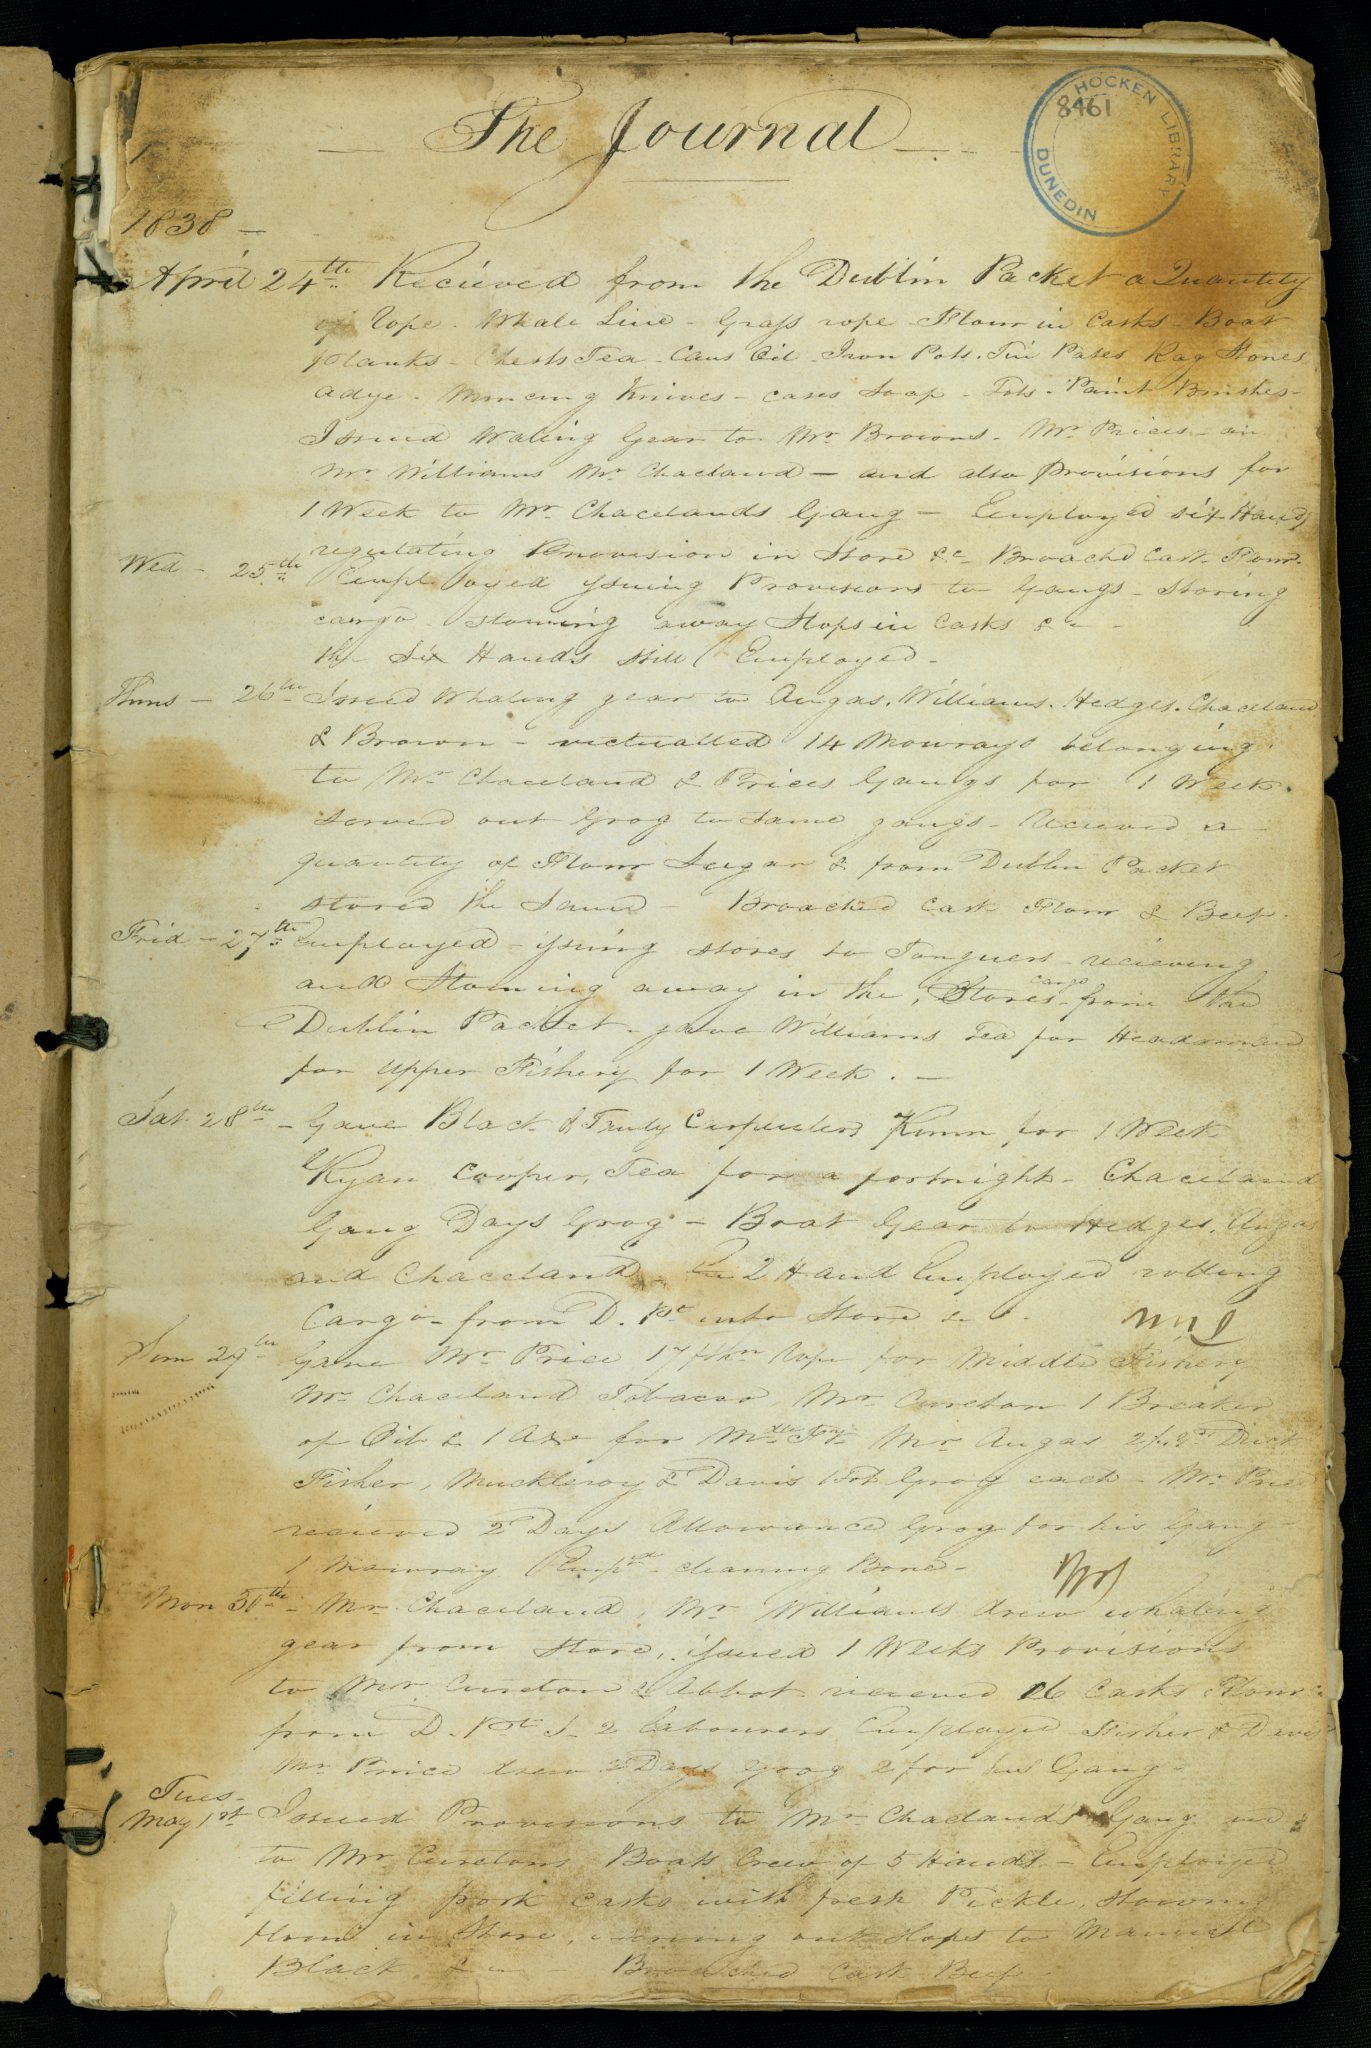 HOCKEN LIBRARY
DUNEDIN
8461
The Journal
1838 -
April 24th Recieved from the Dublin Packet a Quantity
of Rope. Whale Line - Grass rope - Flour in Casks - Boat
planks - Chests Tea - Cans Oil - Iron Pots. Tin Pates Rag Stones
adze - Mincing Knives - cases Soap - Pots - Paint Brushes -
Issued Waling Gear to Mr Browns - Mr Prices -
Mr Williams Mr Chaceland - and also provisions for
1 Week to Mr Chacelands Gang - Employed six Hands
regulating Provision in Store &c - Broachd Cask Flour.
Wed - 25th Employed issuing Provisions to Gangs - storing
cargo - stowing away Slops in Casks &c -
the Six Hands still Employed -
Thurs - 26th Issued Whaling gear to Angas. Williams. Hedges. Chaceland
& Brown - victualled 14 Mowrays belonging
to Mr Chaceland & Prices Gangs for 1 Week.
served out Grog to same gangs - Recieved a
quantity of Flour Sugar & from Dublin Packet
stored the Same - Broached Cask Flour & Beef.
Frid - 27th Employed - issuing stores to Tonguers - recieving
cargo
and Stowing away in the Stores from the
Dublin Packet - gave Williams Tea for Headsmen
for upper Fishery for 1 Week. -
Sat 28th - Gave Black & Truly Carpenters Rum for 1 Week
Ryan Cooper, Tea for a fortnight - Chaceland
Gang Days Grog - Boat Gear to Hedges, Angas
and Chaceland 2 Hand Employed rolling
Cargo from D. Pt into Store &c.
Sun 29th Gave Mr Price 17 fthm Rope for Middle Fishery
Mr Chaceland Tobacco, Mr Cureton 1 Breaker
of Oil & 1 Axe for Mdle Fy Mr Angas Duck
Fisher, Muckleroy & Davis 1 Pot Grog each - Mr Price
recieved 2 Days Allowance Grog for his Gang -
1 Mowray Empd cleaning Bone -
Mon 30th - Mr Chaceland, Mr Williams drew whaling
gear from Store, issued 1 Weeks Provisions
to Mr Cureton & Abbot recieved 26 Casks Flour
from D. Pkt 2 Labourers Employed Fisher & Davis
Mr Price drew 2 Days Grog for his Gang -
Tues -
May 1st Issued Provisions to Mr Chacland's Gang and
to Mr Curetons Boats Crew of 5 Hands - Employed
filling pork casks with fresh Pickle, Stowing
flour in Store, serving out Slops to Manuel
Black &c - Broached Cask Beef